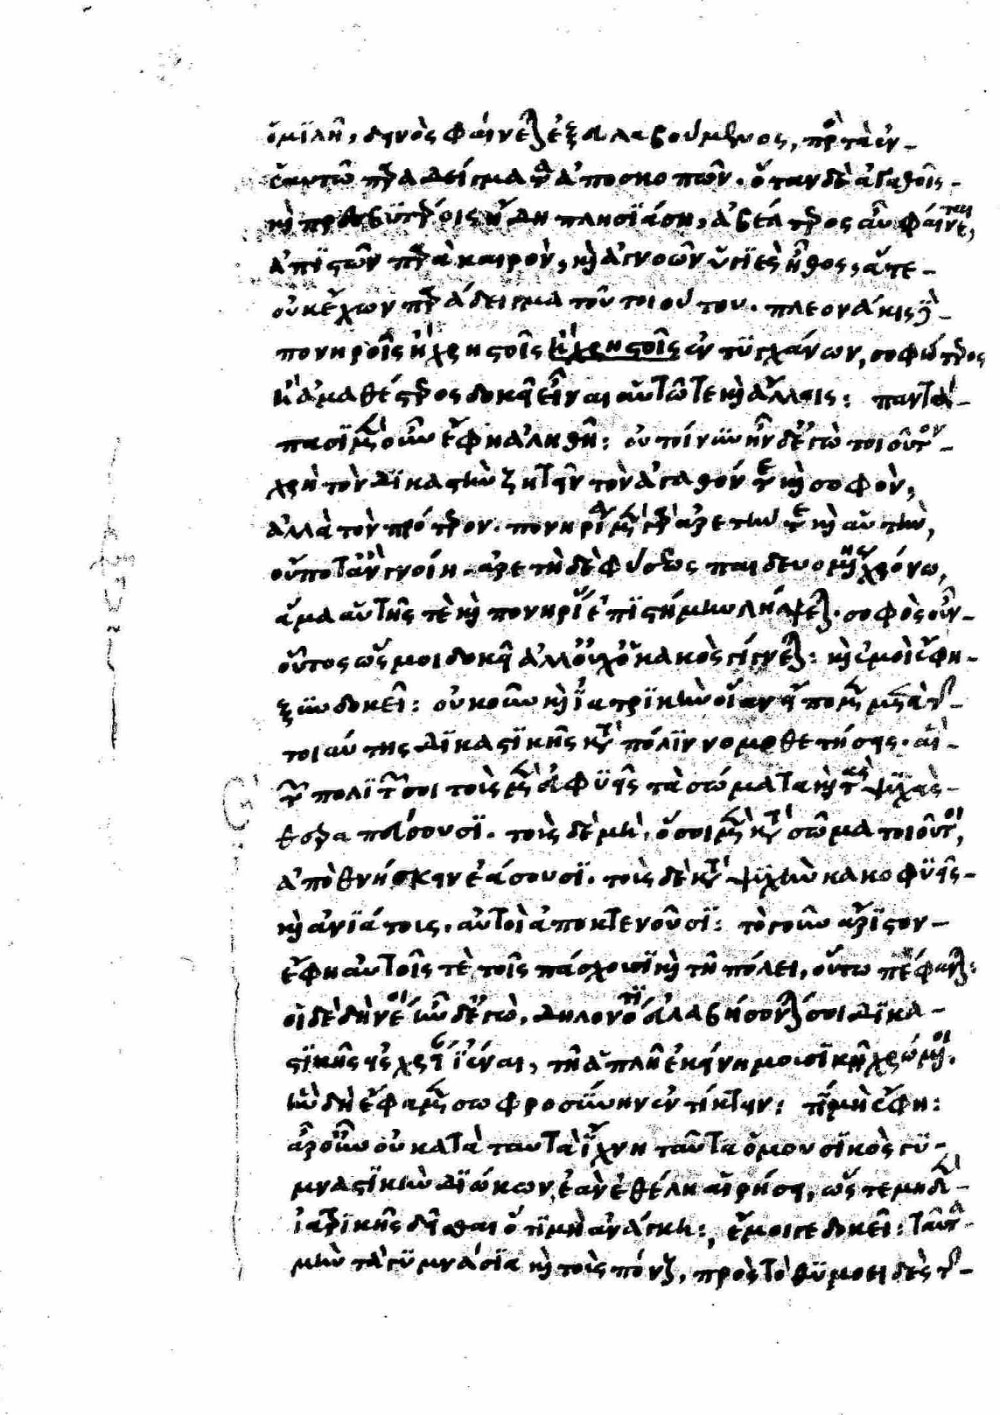 ὁμιλῆ, δεινὸς φαίνεται ἐξευλαβούμενος, πρὸς τὰ ἐν
ἑαυτῶ παραδείγματα ἀποσκοπῶν. ὅταν δὲ ἀγαθοῖς
καὶ πρεσβυτέροις ἤδη πλησιάση, ἀβέλτερος αὖ φαίνεται,
ἀπιστῶν παρὰ καιρὸν, καὶ ἀγνοῶν ὑγιὲς ἦθος, ἅτε
οὐκ ἔχων παράδειγμα τοῦ τοιούτου. πλεονάκις δὲ
πονηροῖς ἢ χρηστοῖς ἢ χρηστοῖς ἐντυγχάνων, σοφώτερος
ἢ ἀμαθέστερος δοκεῖ εἶναι αὑτῶ τε καὶ ἄλλοις: παντά
πασι μὲν οὖν ἔφη ἀληθῆ: οὐ τοίνυν ἦν δ' ἐγὼ τοιοῦτον
χρὴ τὸν δικαστὴν ζητεῖν τὸν ἀγαθόν τε καὶ σοφὸν,
ἀλλὰ τὸν πρότερον. πονηρία μὲν γὰρ ἀρετήν τε καὶ αὑτὴν,
οὔποτ' ἂν γνοίη. ἀρετὴ δὲ φύσεως παιδευομένης χρόνω,
ἅμα αὑτῆς τὲ καὶ πονηρίας ἐπιστήμην λήψεται. σοφὸς οὖν
οὗτος ὥς μοι δοκεῖ ἀλλ' οὐχ ὁ κακὸς γίγνεται: καὶ ἐμοὶ ἔφη
ξυνδοκεῖ: οὐκοῦν καὶ ἰατρικὴν οἵαν εἴπομεν μετὰ τῆς
τοιαύτης δικαστικῆς κατὰ πόλιν νομοθετήσεις. αἳ
τῶν πολιτῶν σοι τοὺς μὲν εὐφυεῖς τὰ σώματα καὶ τὰς ψυχὰς
θεραπεύσουσι. τοὺς δὲ μὴ, ὅσοι μὲν κατὰ σῶμα τοιοῦτοι,
ἀποθνήσκειν ἐάσουσι. τοὺς δὲ κατὰ ψυχὴν κακοφυεῖς
καὶ ἀνιάτους. αὐτοὶ ἀποκτενοῦσι: τὸ γοῦν ἄριστον
ἔφη αὐτοῖς τὲ τοῖς πάσχουσι καὶ τῆ πόλει, οὕτω πέφανται:
οἱ δὲ δὴ νέοι ἦν δ' ἐγὼ, δῆλον ὅτι εὐλαβήσονταί σοι δικα
στικῆς εἰς χρείαν ἰέναι, τῆ ἁπλῆ ἐκείνη μουσικῆ χρώμενοι.
ἣν δὴ ἔφαμεν σωφροσύνην ἐντίκτειν: τί μὴ ἔφη:
ἆρ' οὖν οὐ κατὰ ταυτὰ ἴχνη ταῦτα ὁ μουσικὸς γυ
μναστικὴν διώκων, ἐὰν ἐθέλη αἱρήσει, ὥστε μηδὲν
ἰατρικῆς δεῖσθαι ὅτι μὴ ἀνάγκη:, ἔμοιγε δοκεῖ: ταῦτα
μὴν τὰ γυμνάσια καὶ τοὺς πόνους, πρὸς τὸ θυμοειδὲς τῆς